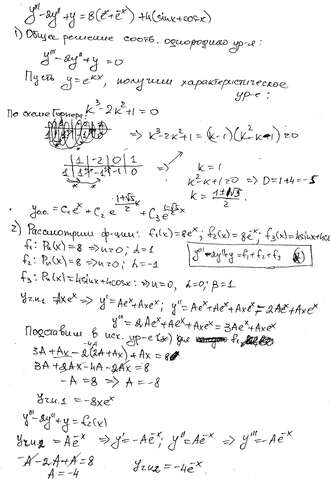 y''' - 2y'' + y = 8(eˣ + e⁻ˣ) + 4(sinx + cosx)
1) Общее решение соотв. однородного ур-я:
y''' - 2y'' + y = 0
Пусть y = e^{kx}, получим характеристическое
ур-е:
По схеме Горнера: k³ - 2k² + 1 = 0
⇒ k³ - 2k² + 1 = (k-1)(k² - k - 1) = 0
| 1 | -2 | 0 | 1
1 | 1 | -1 | -1 | 0
k = 1
k² - k - 1 = 0 ⇒ D = 1 + 4 = 5
k = (1±√5)/2
y₀.₀. = C₁eˣ + C₂e^{(1+√5)/2 x} + C₃e^{(1-√5)/2 x}
2) Рассмотрим ф-ции: f₁(x) = 8eˣ; f₂(x) = 8e⁻ˣ; f₃(x) = 4sinx + 4cosx
f₁: Pₙ(x) = 8 ⇒ n = 0; α = 1
y''' - 2y'' + y = f₁ + f₂ + f₃
f₂: Pₙ(x) = 8 ⇒ n = 0; α = -1
f₃: Pₙ(x) = 4sinx + 4cosx ⇒ n = 0, α = 0; β = 1.
yч.н.1 = Axeˣ ⇒ y' = Aeˣ + Axeˣ; y'' = Aeˣ + Aeˣ + Axeˣ = 2Aeˣ + Axeˣ
y''' = 2Aeˣ + Aeˣ + Axeˣ = 3Aeˣ + Axeˣ
Подставим в исх. ур-е для f₁
3A + Ax - 2(2A + Ax) + Ax = 8
3A + 2Ax - 4A - 2Ax = 8
-A = 8 ⇒ A = -8
yч.н.1 = -8xeˣ
y''' - 2y'' + y = f₂(x)
yч.н.2 = Ae⁻ˣ ⇒ y' = -Ae⁻ˣ; y'' = Ae⁻ˣ ⇒ y''' = -Ae⁻ˣ
-A - 2A + A = 8
yч.н.2 = -4e⁻ˣ
A = -4